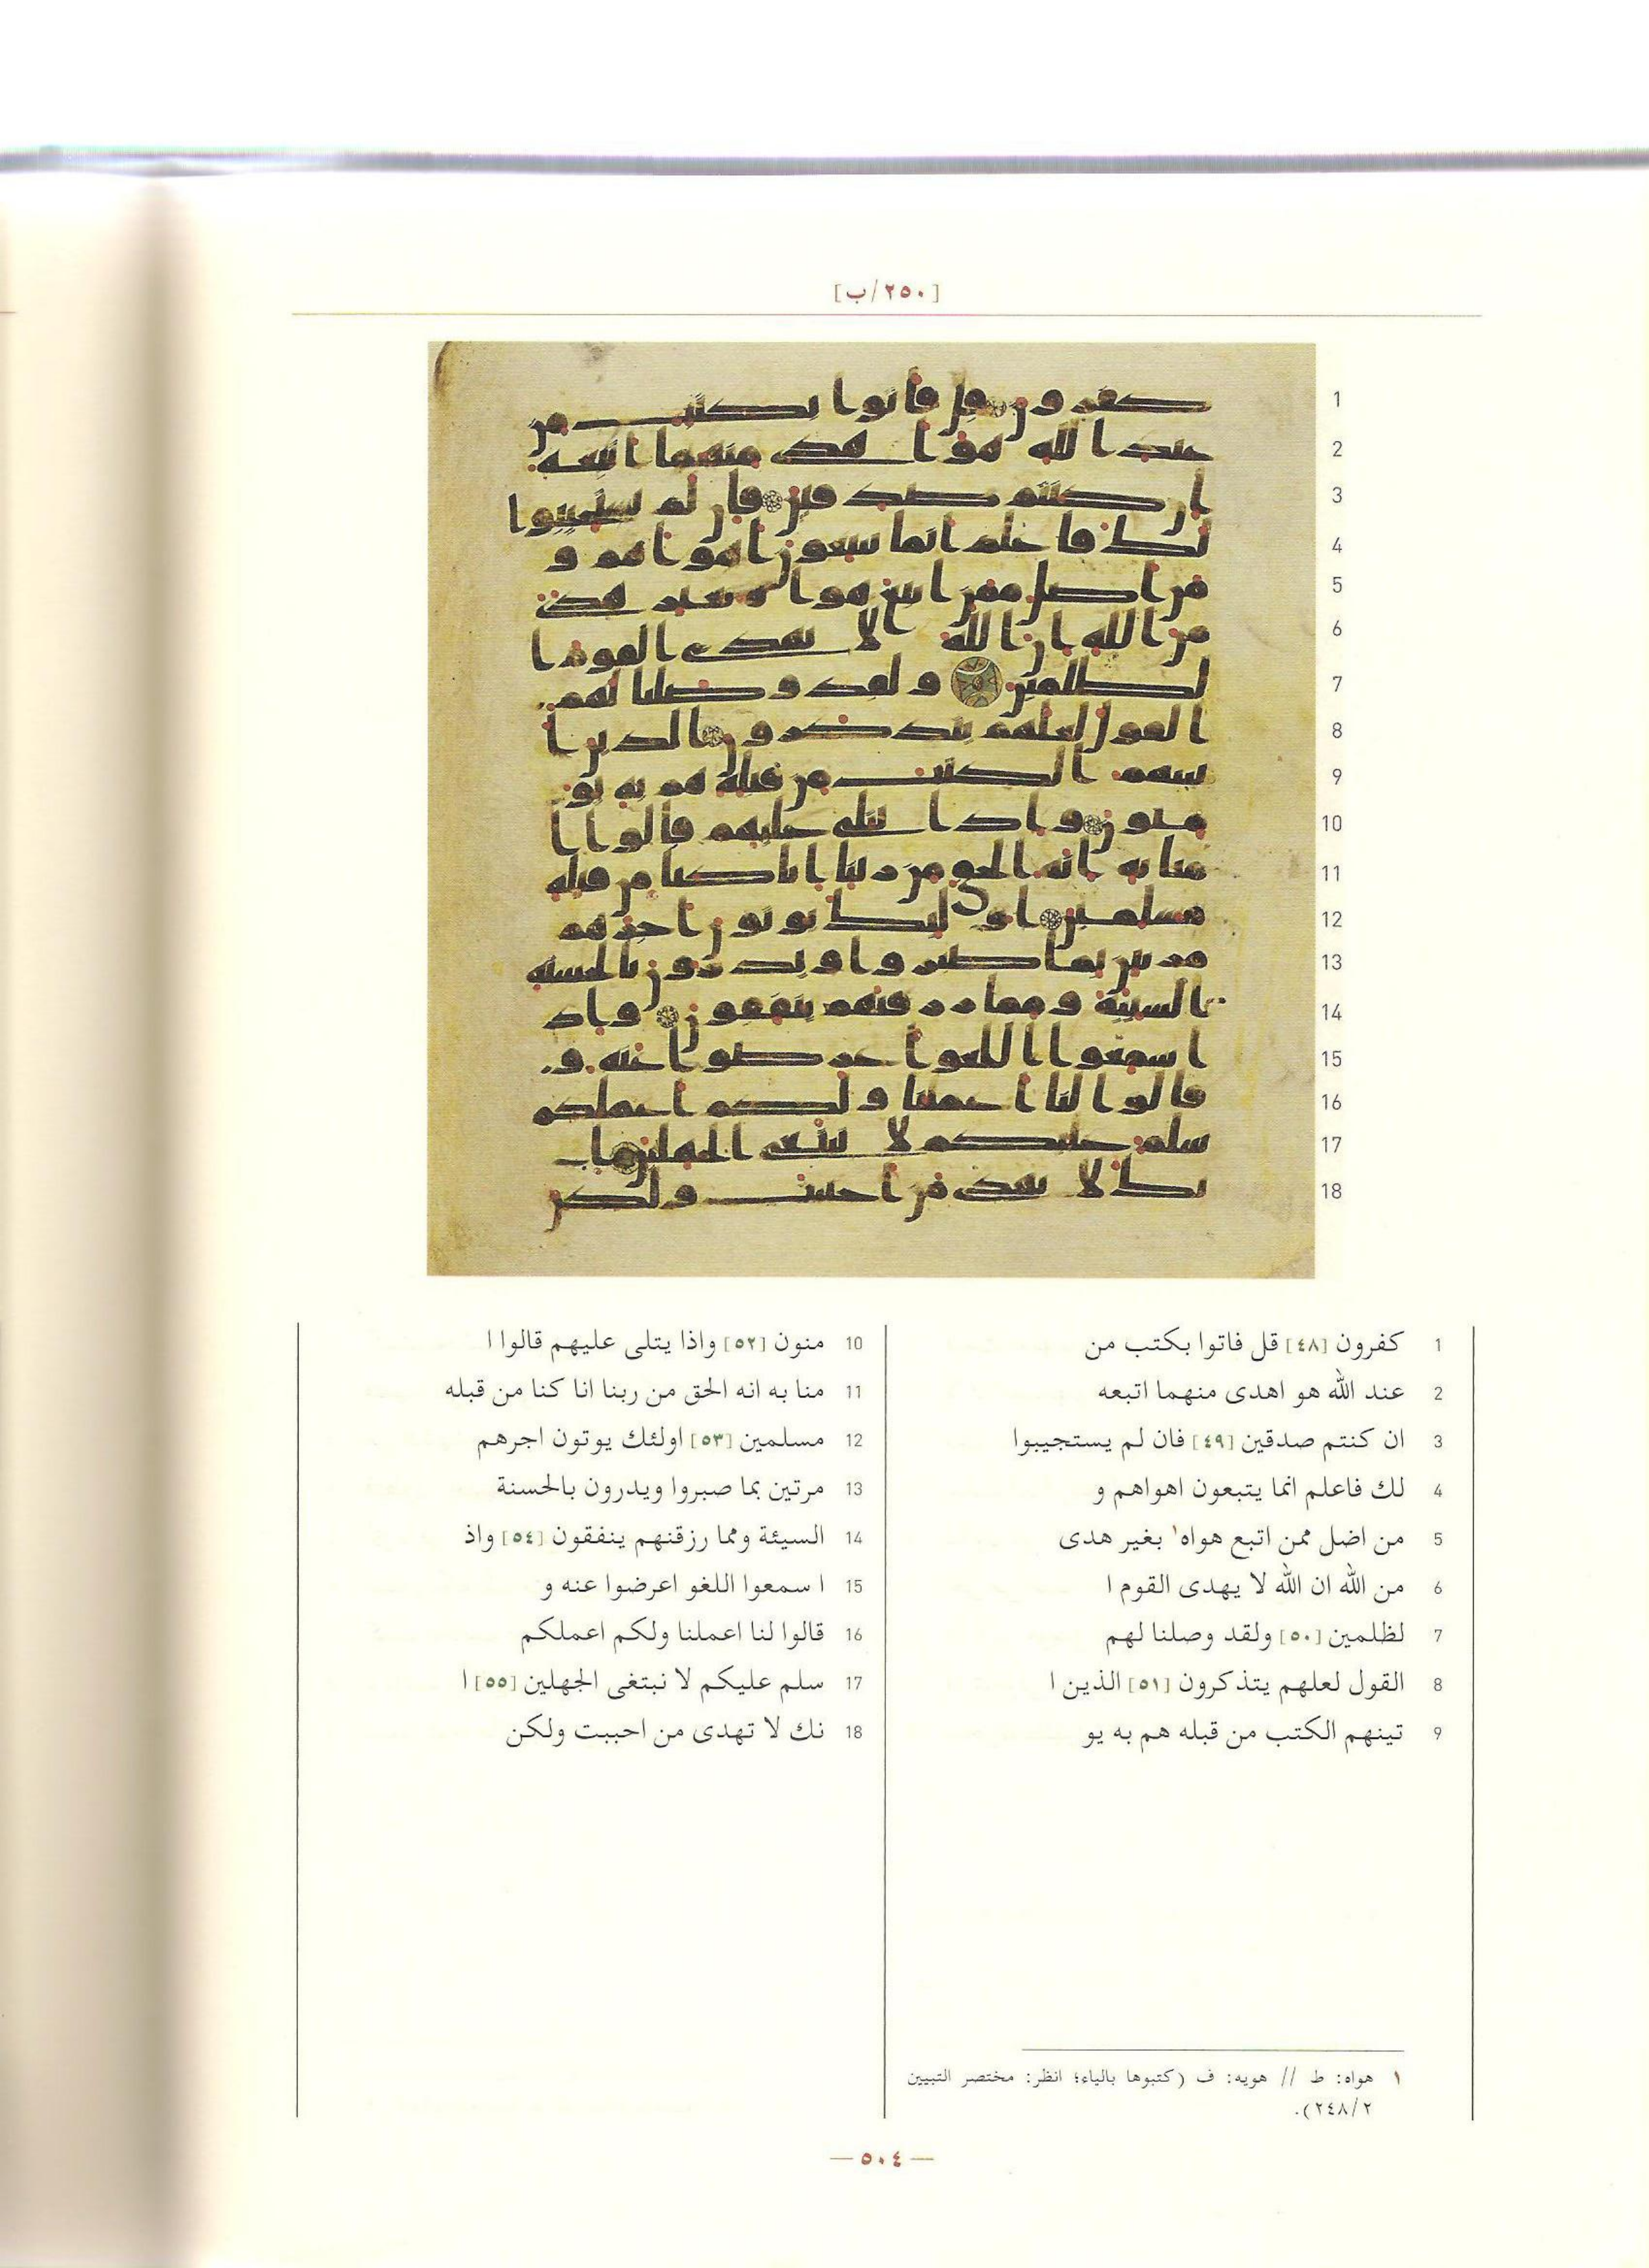 [٢٥٠/ب]
1 كفرون [٤٨] قل فاتوا بكتب من
2 عند الله هو اهدى منهما اتبعه
3 ان كنتم صدقين [٤٩] فان لم يستجيبوا
4 لك فاعلم انما يتبعون اهواهم و
5 من اضل ممن اتبع هواه١ بغير هدى
6 من الله ان الله لا يهدى القوم ا
7 لظلمين [٥٠] ولقد وصلنا لهم
8 القول لعلهم يتذكرون [٥١] الذين ا
9 تينهم الكتب من قبله هم به يو
10 منون [٥٢] واذا يتلى عليهم قالوا ا
11 منا به انه الحق من ربنا انا كنا من قبله
12 مسلمين [٥٣] اولئك يوتون اجرهم
13 مرتين بما صبروا ويدرون بالحسنة
14 السيئة ومما رزقنهم ينفقون [٥٤] واذ
15 ا سمعوا اللغو اعرضوا عنه و
16 قالوا لنا اعملنا ولكم اعملكم
17 سلم عليكم لا نبتغى الجهلين [٥٥] ا
18 نك لا تهدى من احببت ولكن
١ هواه: ط // هويه: ف (كتبوها بالياء؛ انظر: مختصر التبيين
٢٤٨/٢).
— ٥٠٤ —